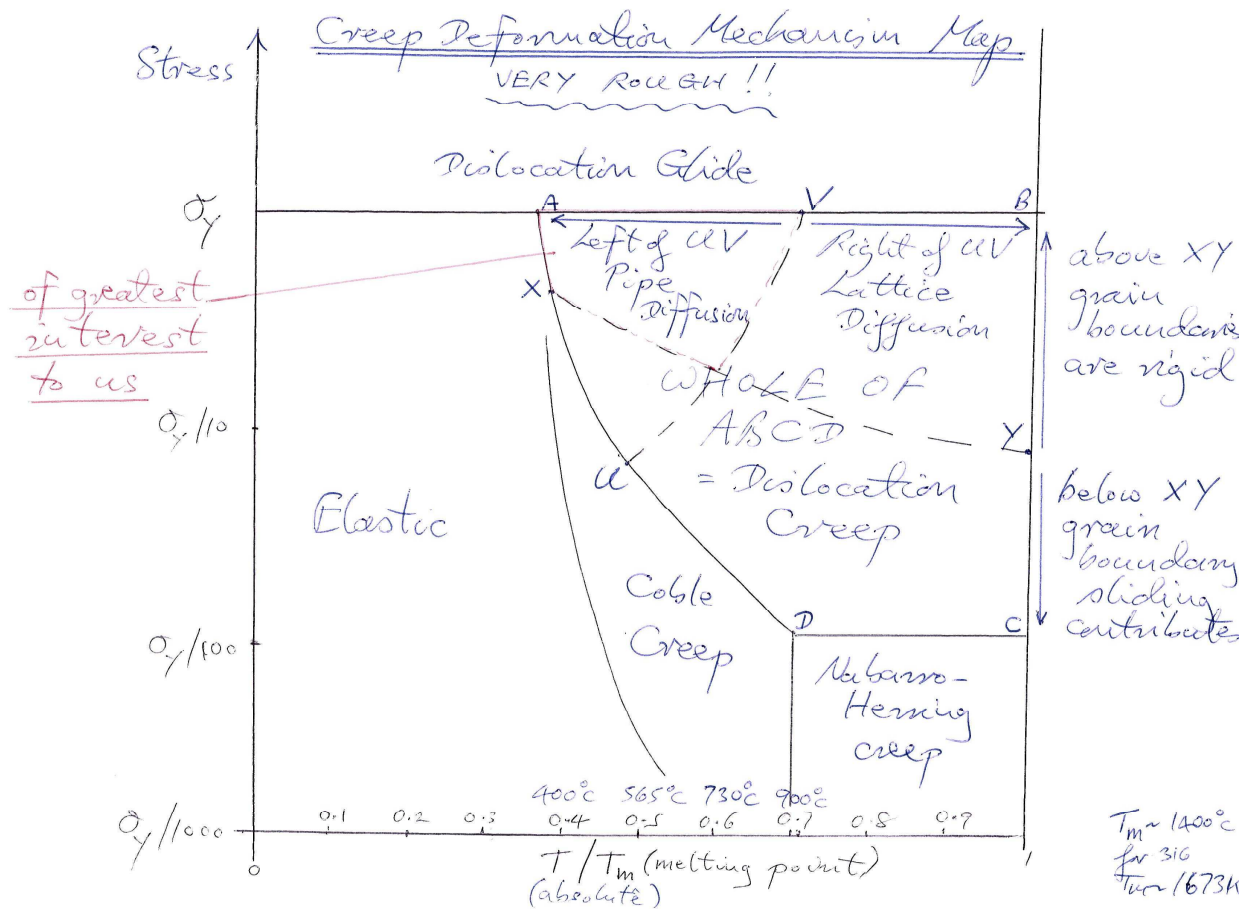 Creep Deformation Mechanism Map
VERY ROUGH !!
Stress
Dislocation Glide
σy
A
V
B
Left of UV
Pipe
Diffusion
Right of UV
Lattice
Diffusion
above XY
grain
boundaries
are rigid
of greatest
interest
to us
X
WHOLE OF
ABCD
= Dislocation
Creep
σy/10
Y
U
Elastic
below XY
grain
boundary
sliding
contributes
Coble
Creep
D
C
σy/100
Nabarro-
Herring
creep
400°C 565°C 730°C 900°C
0.1 0.2 0.3 0.4 0.5 0.6 0.7 0.8 0.9
σy/1000
0
T/Tm (melting point)
(absolute)
1
Tm~1400°C
for 316
Tm~1673K